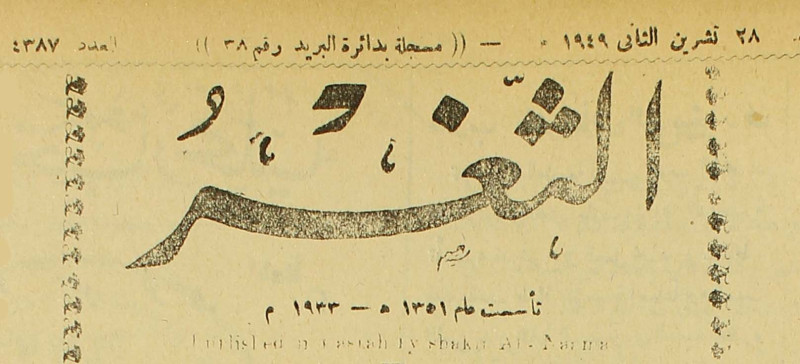 ٢٨ تشرين الثانى ١٩٤٩ — (( مسجلة بدائرة البريد رقم ٣٨ )) العدد ٤٣٨٧
الثغر
تأسست عام ١٣٥١ ه — ١٩٣٣ م
by shakir Al - Nama